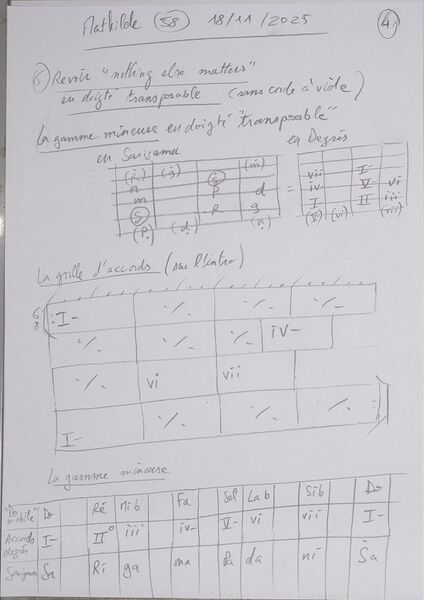 Mathilde 58 18/11/2025 4
6) Revoir "nothing else matters"
en doigté transposable (sans corde à vide)
La gamme mineure en doigté "transposable"
en Sargam en Degrés
(g) (m) vii I-
n S iv- V- vi
m P d = I- II iii
S R g (V) (vi) (vii)
(P) (d) (n)
La grille d'accords (sur l'intro)
6
8 I- ٪ ٪ ٪
٪ ٪ ٪ iv-
٪ vi vii
I- ٪ ٪ ٪
La gamme mineure
"Do mobile" Do Ré Mib Fa Sol Lab Sib Do
Accords degrés I- II° iii iv- V- vi vii I-
Sargam Sa Ri ga ma Pa da ni Sa